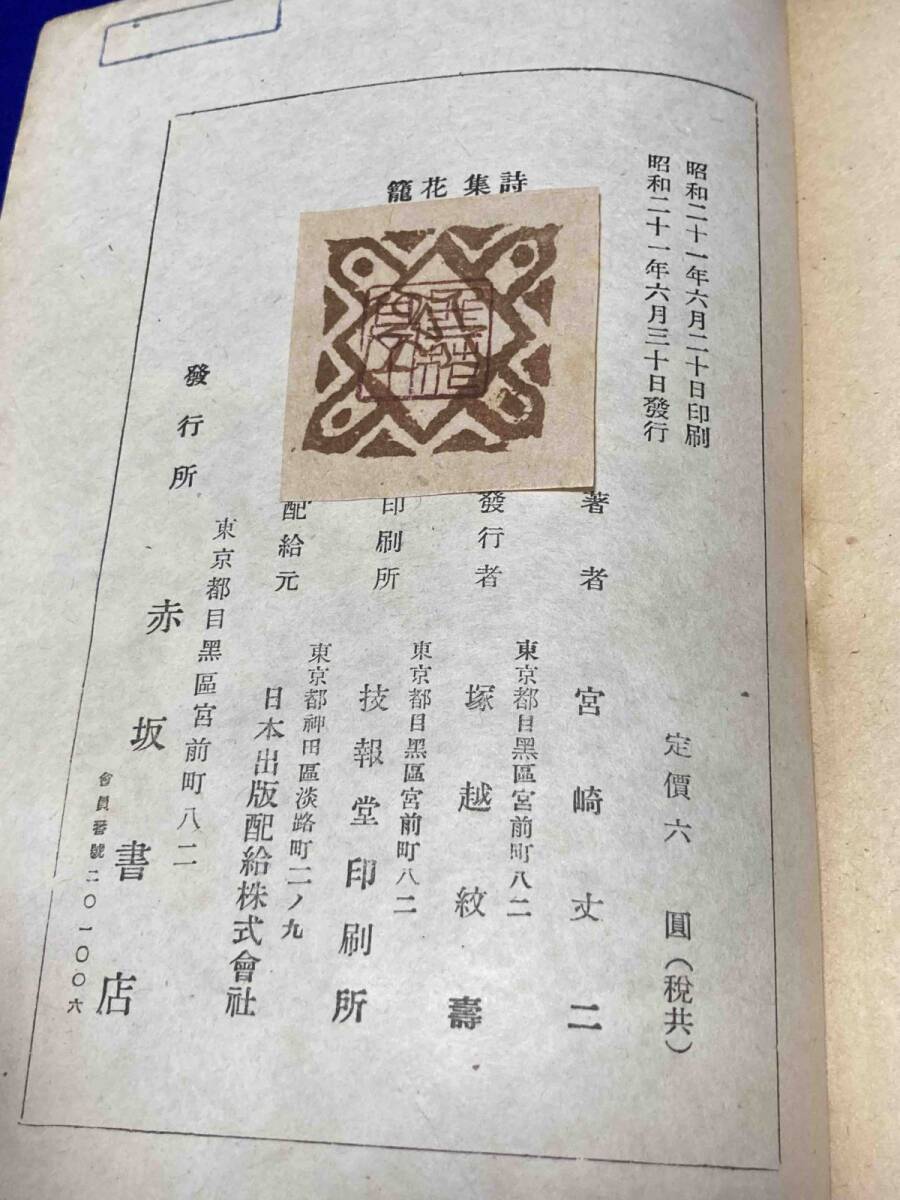 昭和二十一年六月二十日印刷
昭和二十一年六月三十日發行
定價六圓(稅共)
詩集 花籠
著者 宮崎丈二
發行者 東京都目黑區宮前町八二
塚越紋壽
印刷所 東京都目黑區宮前町八二
技報堂印刷所
配給元 東京都神田區淡路町二ノ九
日本出版配給株式會社
發行所 東京都目黑區宮前町八二
赤坂書店
會員番號二〇一〇〇六